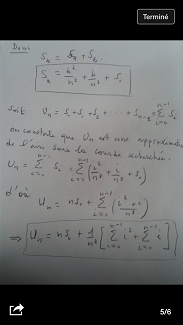 Terminé
Donc
S_k = S_a + S_b.
S_k = k²/n³ + k/n³ + S_1
Soit U_n = S_0 + S_1 + S_2 + ... + S_{n-1} = Σ_{i=0}^{n-1} S_i
on constate que U_n est une approximation
de l'aire sous la courbe recherchée.
U_n = Σ_{i=0}^{n-1} S_i = Σ_{i=0}^{n-1} (i²/n³ + i/n³ + S_1)
d'où U_n = nS_1 + Σ_{i=0}^{n-1} (i² + i / n³)
⇒ U_n = nS_1 + 1/n³ [Σ_{i=0}^{n-1} i² + Σ_{i=0}^{n-1} i]
5/6